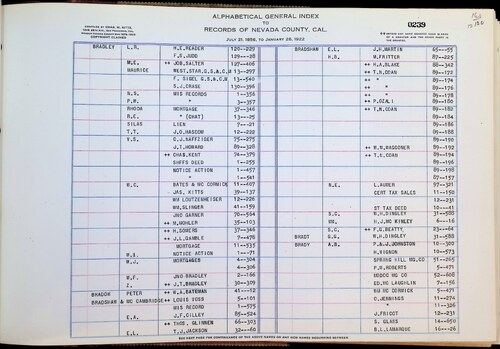 ALPHABETICAL GENERAL INDEX
TO
RECORDS OF NEVADA COUNTY, CAL.
0239
BRADLEY L.R. H.E. READER 120—229
F.S. JUDD 129—28
M.E. ++ JOB. SALTER 127—406
MAURICE WEST. STAR. G.& S.C.M 13—297
F. SIGEL G.S.& C.M 13—546
S.J. CRASE 130—396
N.S. MIS RECORDS 1—356
P.M. " 3—357
RHODA MORTGAGE 37—346
R.E. " (CHAT) 13—25
SILAS LIEN 7—21
T.T. J.O HASCOM 12—222
V.S. C.J. NAFFZIGER 75—275
J.T. HOWARD 89—328
++ CHAS. KENT 74—379
SHFFS DEED 1—255
NOTICE ACTION 1—457
" 1—541
W.C. BATES & MC CORMICK 11—407
JAS. KITTS 29—137
WM LOUTZENHEISER 12—226
WM. SLINGER 41—159
JNO GARNER 70—564
++ M. MOHLER 35—103
++ H. SOMERS 37—346
++ J.L. GAMBLE 7—478
MORTGAGE 11—535
W.E. NOTICE ACTION 1—71
W.J. MORTGAGES 4—304
4—306
W.F. JNO BRADLEY 2—166
Z. ++ J.T. BRADLEY 30—309
BRADOR PETER ++ W.A. BATEMAN 41—12
BRADSHAR & MC CAMBRIDGE ++ LOUIS VOSS 5—101
MIS RECORD 1—575
E.A. J.F. GILLEY 85—524
++ THOS. GLINNEN 66—303
E.L. T.J. JACKSON 32—60
BRADSHAW E.L. J.H. MARTIN 45—55
H.S. M. FRITTER 87—225
++ H.A. BLAKE 88—342
++ T.N. COAN 89—172
++ " 89—174
++ " 89—178
++ P. OZALI 89—184
++ T.N. COAN 89—182
89—184
89—186
89—188
89—190
89—192
++ W.N. WAGGONER 89—192
++ T.N. COAN 89—194
89—196
89—198
87—157
N.E. L. AUKER 97—321
CERT TAX SALES 11—150
12—231
ST TAX DEED 10—41
S.C. N.H. DINGLEY 31—588
WM. H.J. MC KINLEY 6—16
S.C. ++ F.G. BEATTY 23—64
BRADT G.G. N.H. DINGLEY 31—588
BRADY A.B. P.& J. JOHNSTON 10—300
H. VIGNON 10—573
SPRING HILL MG. CO 51—265
P.H. ROBERTS 5—471
HODGO MG CO 52—608
ED. MC LAUGHLIN 7—156
WM MC CORMICK 5—471
C. JENNINGS 11—274
" 11—326
J. FRICOT 12—231
S. GLASS 14—650
B.L. LAMARQUE 14—26